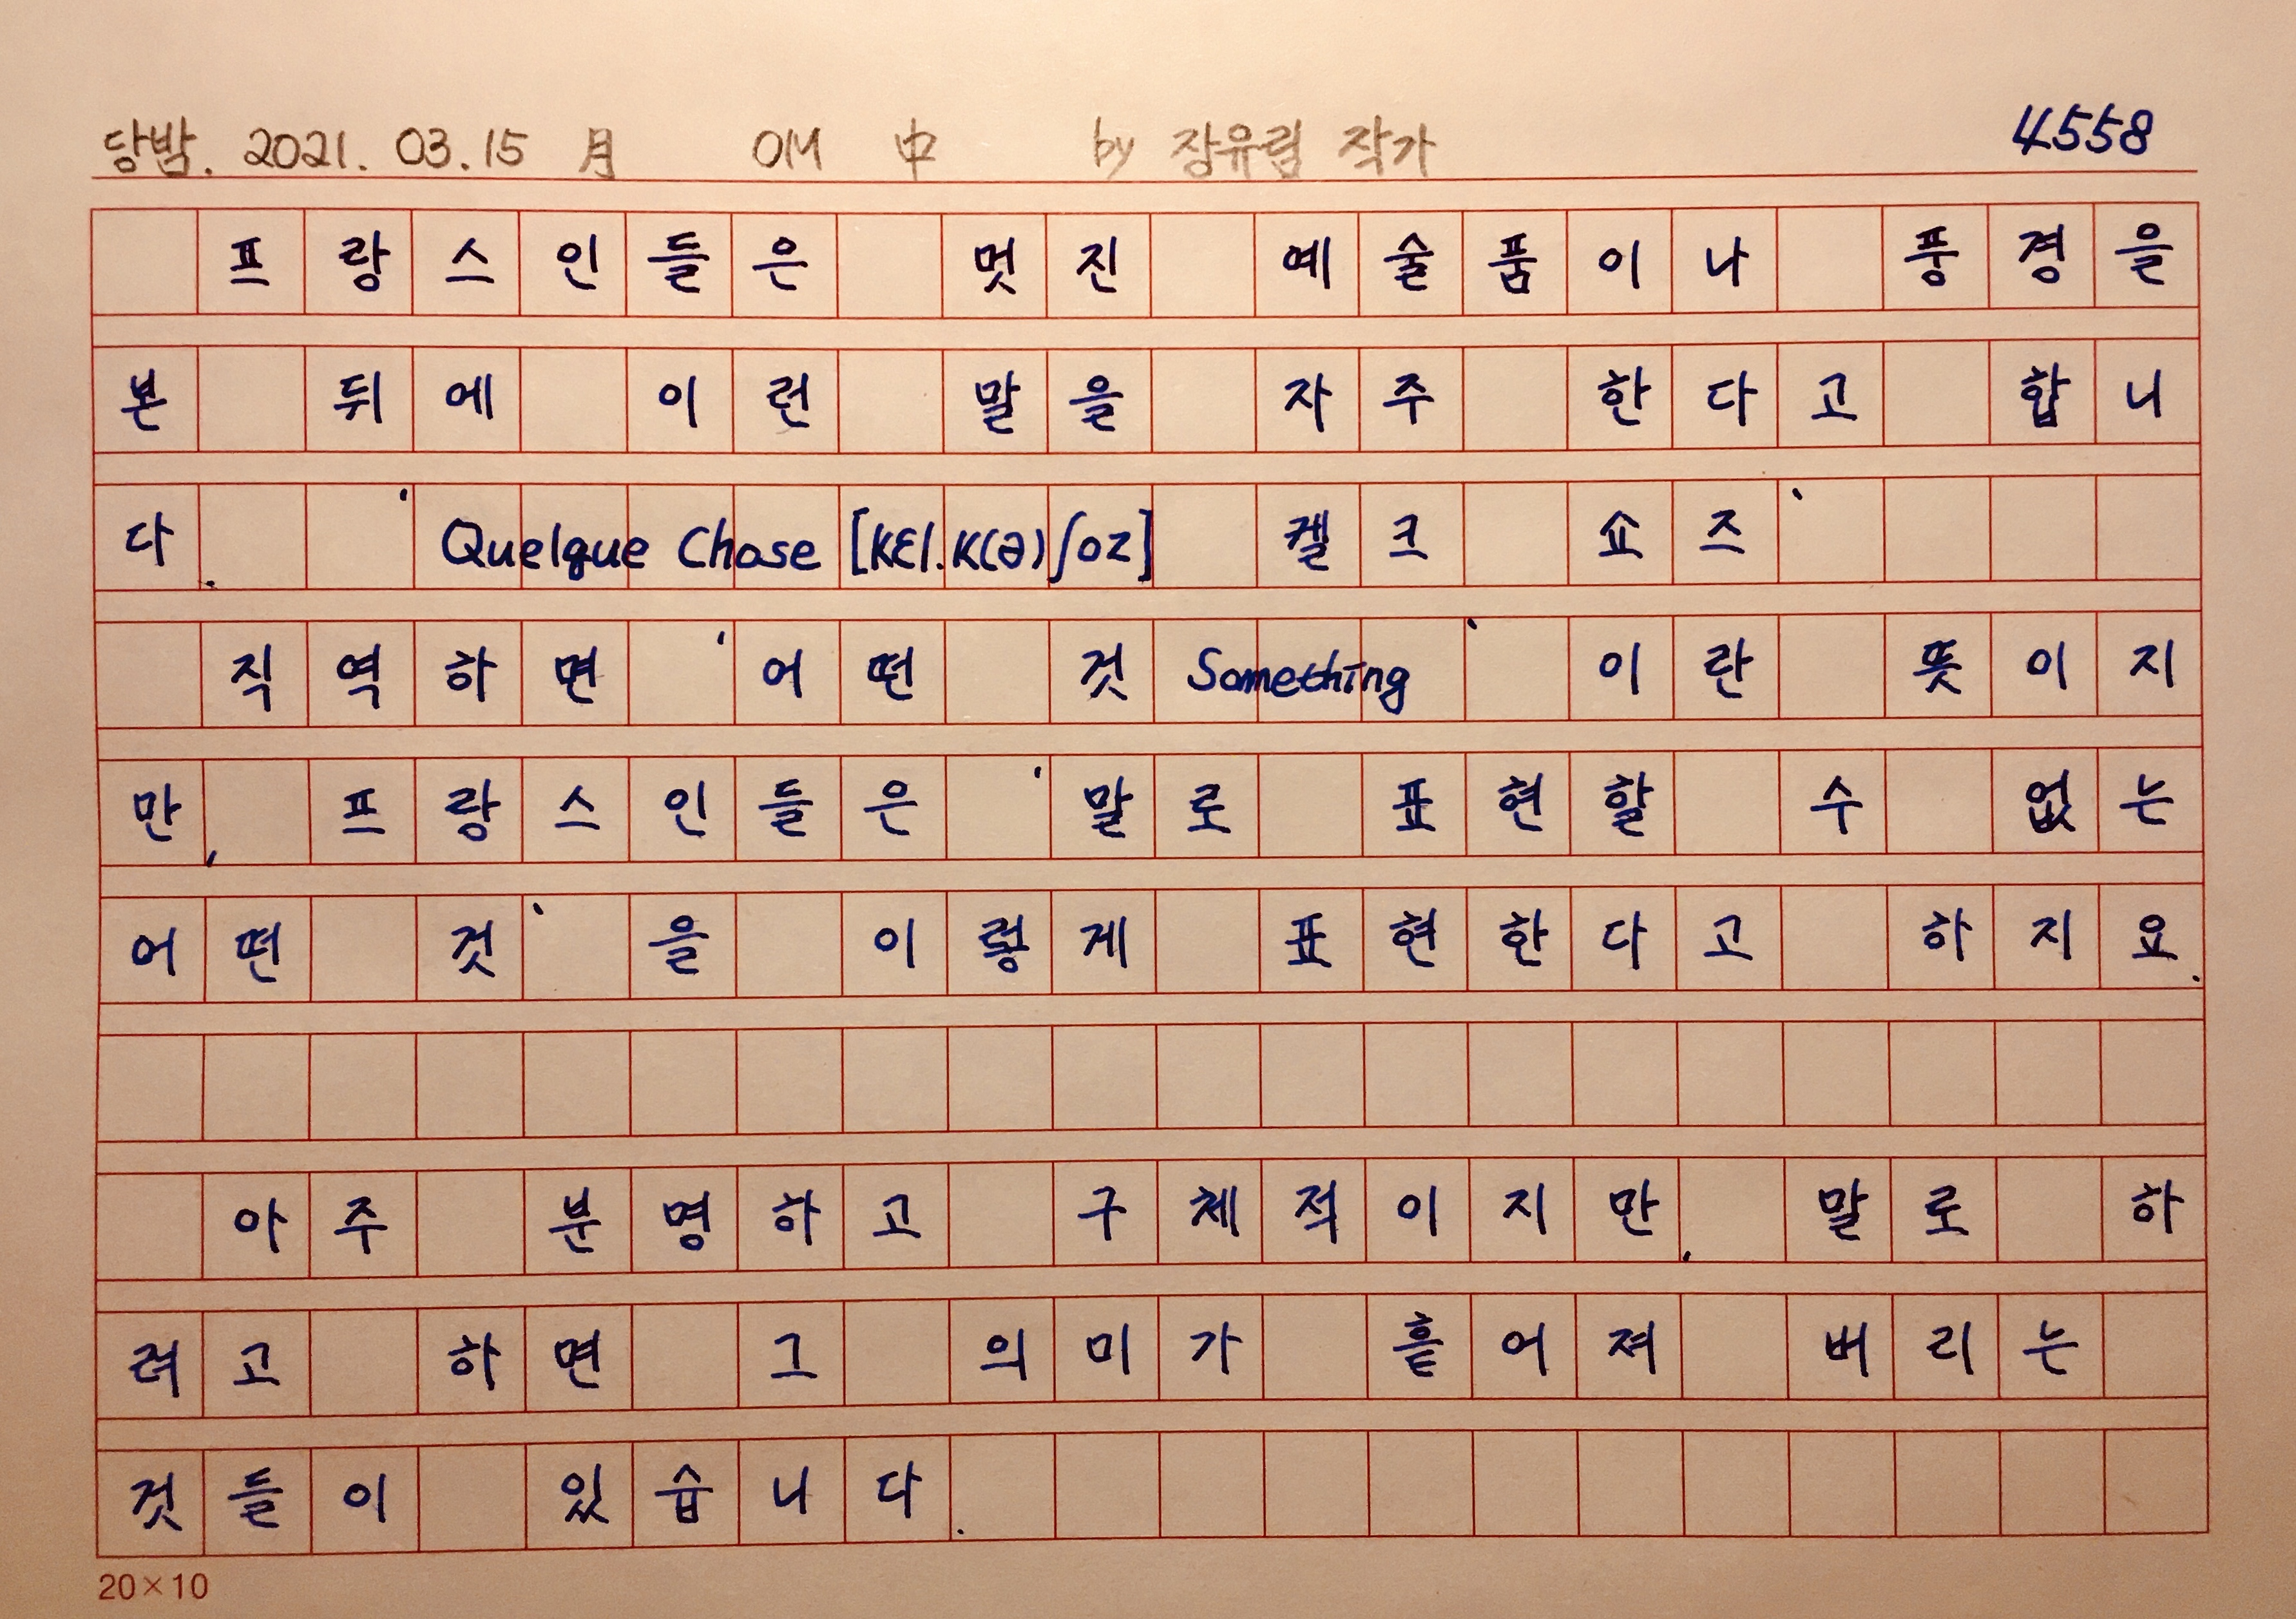 당밤. 2021. 03. 15 月 OM 中 by 장유림 작가 4558
프랑스인들은 멋진 예술품이나 풍경을
본 뒤에 이런 말을 자주 한다고 합니
다. 'Quelque Chose [kɛl.k(ə)ʃoz]켈크 쇼즈'
직역하면 '어떤 것 Something' 이란 뜻이지
만, 프랑스인들은 '말로 표현할 수 없는
어떤 것'을 이렇게 표현한다고 하지요.
아주 분명하고 구체적이지만, 말로 하
려고 하면 그 의미가 흩어져 버리는
것들이 있습니다.
20×10